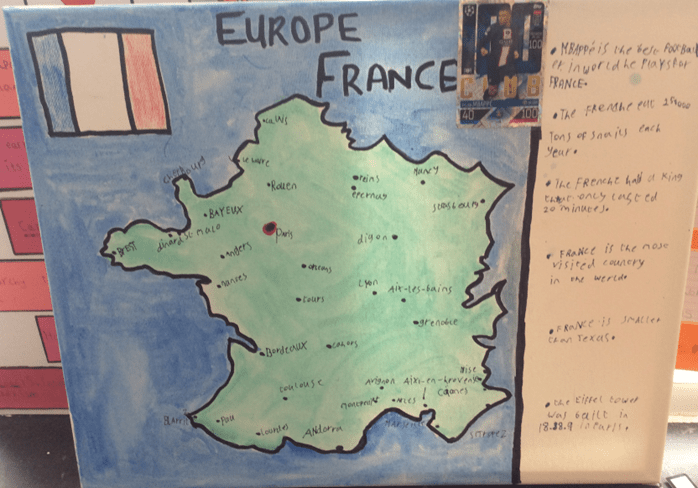 EUROPE
FRANCE
100
40
100
calais
Cherbourg
Le havre
Rouen
reins
epernay
Nancy
strasbourg
BAYEUX
Dinard St malo
BREST
Paris
angers
dijon
nantes
orleans
tours
Lyon
Aix-les-bains
grenoble
Bordeaux
cahors
toulouse
Avignon
Aix-en-provence
nice
Cannes
arles
Marseille
St tropez
Pau
Lourdes
Andorra
• MBAPPÉ is the best FOOTBALL
er in world he plays for
FRANCE.
• The FRENCHE eat 25000
Tons of snails each
Year.
• The FRENCHE had a king
that only lasted
20 minutes.
• FRANCE is the most
visited country
in the world.
• FRANCE is smaller
than TEXAS.
• The Eiffel tower
was built in
18.88.9 in Paris.